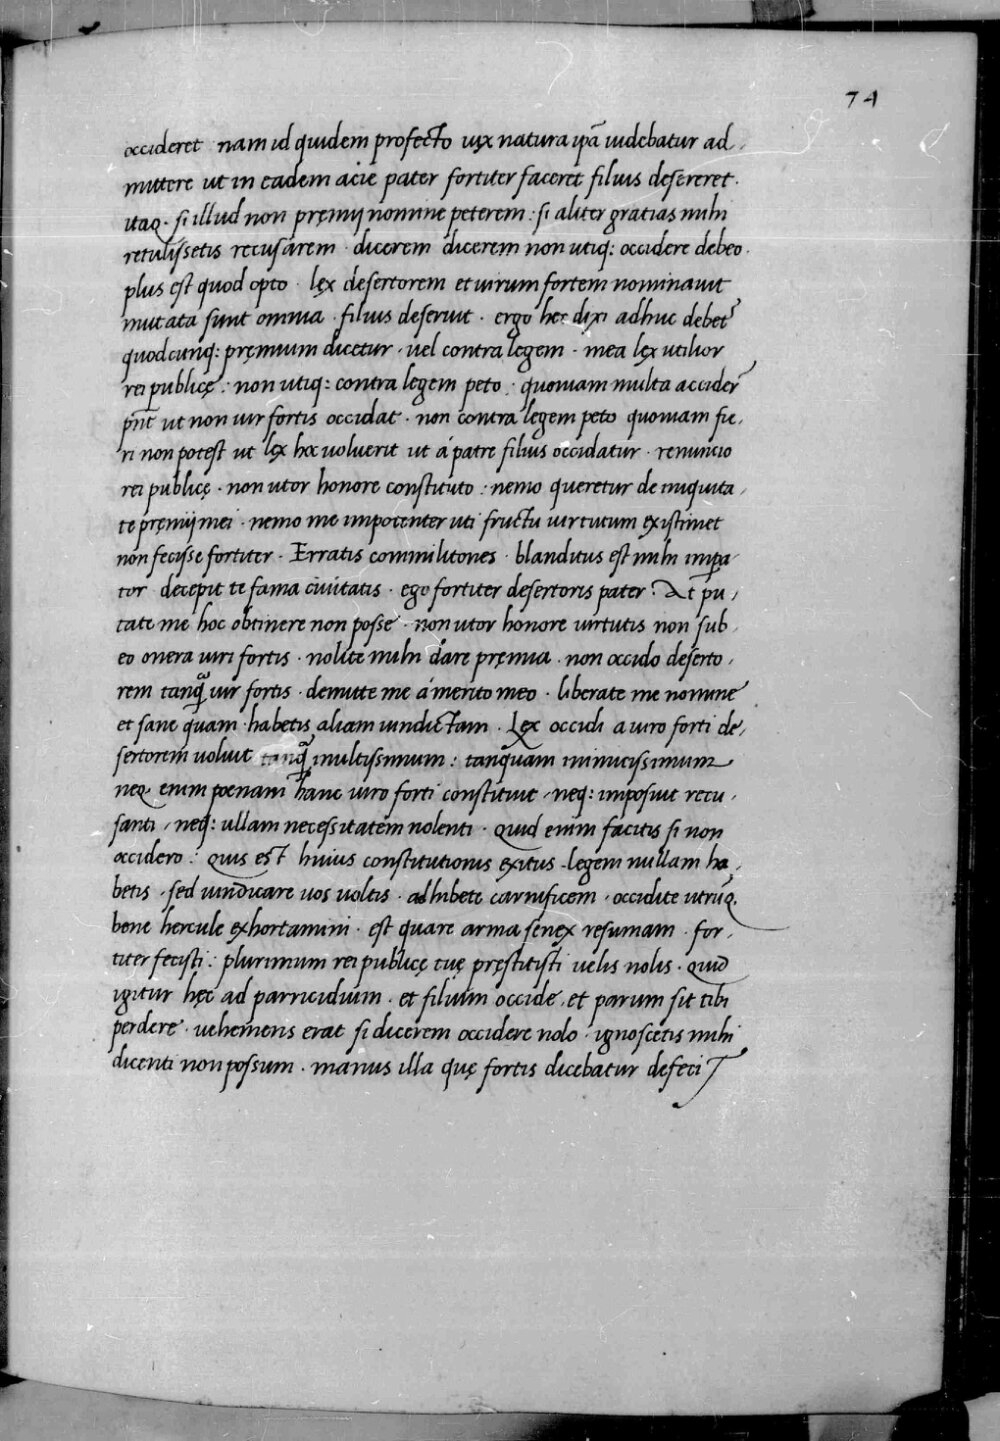 74
occideret nam id quidem profecto uix natura ip̄a uidebatur ad,
mittere ut in eadem acie pater fortiter faceret filius desereret.
itaq. si illud non pręmij nomine peterem: si aliter gratias mihi
retulissetis recusarem. dicerem dicerem non utiq: occidere debeo.
plus est quod opto. lęx desertorem et uirum fortem nominauit
mutata sunt omnia. filius deseruit. ergo hęc dixi adhuc debet
quodcunq: pręmium dicetur, uel contra legem. mea lęx utilior
rei publicę: non utiq: contra legem peto: quoniam multa accider
pn̄t ut non uir fortis occidat. non contra legem peto quoniam fie,
ri non potest ut lęx hęc uoluerit ut á patre filius occidatur. renuncio
rei publicę. non utor honore constituto: nemo queretur de iniquita,
te pręmij mei. nemo me impotenter uti fructu uirtutum existimet
non fecisse fortiter. Erratis commilitones. blanditus est mihi imp̄a
tor decepit te fama ciuitatis. ego fortiter desertoris pater? At pu,
tate me hoc obtinere non posse. non utor honore uirtutis non sub
eo onera uiri fortis. nolite mihi dare pręmia. non occido deserto,
rem tanq̃ uir fortis. demitte me á merito meo. liberate me nomine
et sane quam habetis aliam uindictam. Lęx occidi a uiro forti de,
sertorem uoluit tanq̃ inultissimum: tanquam inimicissimum
neq. enim poenam hanc uiro forti constituit, neq: imposuit recu,
santi, neq: ullam necessitatem nolenti. Quid enim facitis si non
occidero: quis est huius constitutionis exitus. legem nullam ha,
betis. sed uindicare uos uoltis. adhibete carnificem, occidite utrūq.
bene hercule exhortamini. est quare arma senex resumam. for,
titer fecisti: plurimum rei publicę tuę pręstitisti uelis nolis. quid
igitur hęc ad parricidium. et filium occide, et parum sit tibi
perdere. uehemens erat si dicerem occidere nolo. ignoscetis mihi
dicenti non possum. manus illa quę fortis dicebatur defecit